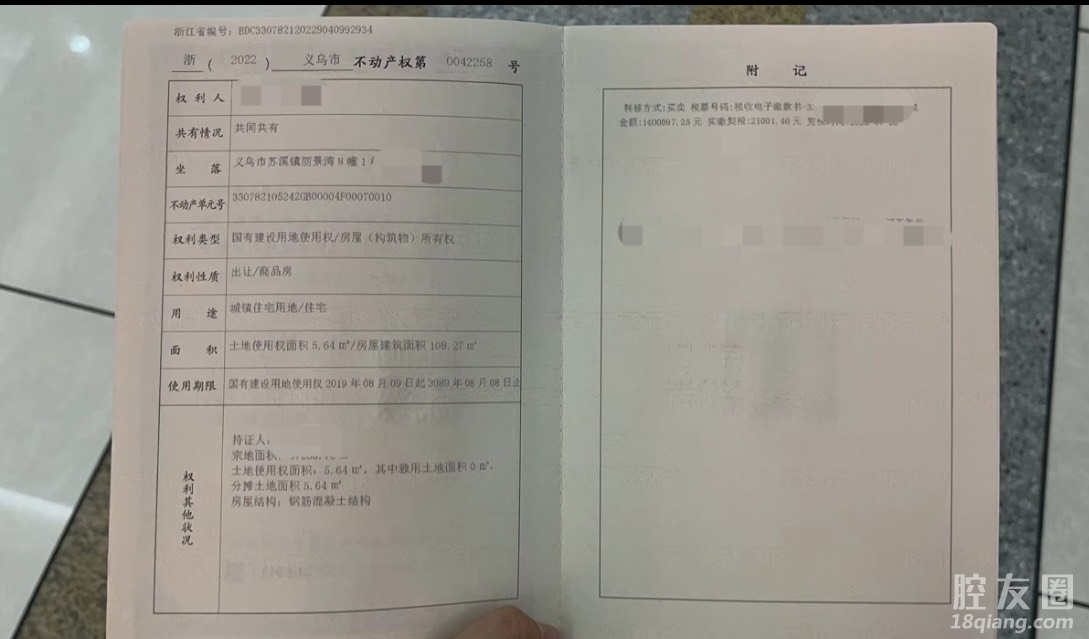 浙江省编号：BDC330782120229040992934
浙（2022）义乌市 不动产权第 0042258 号
权利人
共有情况 共同共有
坐落 义乌市苏溪镇丽景湾8幢1
不动产单元号 330782105242GB00004F00070010
权利类型 国有建设用地使用权/房屋（构筑物）所有权
权利性质 出让/商品房
用途 城镇住宅用地/住宅
面积 土地使用权面积5.64㎡/房屋建筑面积109.27㎡
使用期限 国有建设用地使用权2019年08月09日起2089年08月08日止
权利其他状况
持证人：
宗地面积
土地使用权面积：5.64㎡，其中独用土地面积0㎡，
分摊土地面积5.64㎡
房屋结构：钢筋混凝土结构
附记
转移方式：买卖 税票号码：税收电子缴款书-3
金额：1400097.25元 实缴契税：21001.46元
腔友圈
18qiang.com